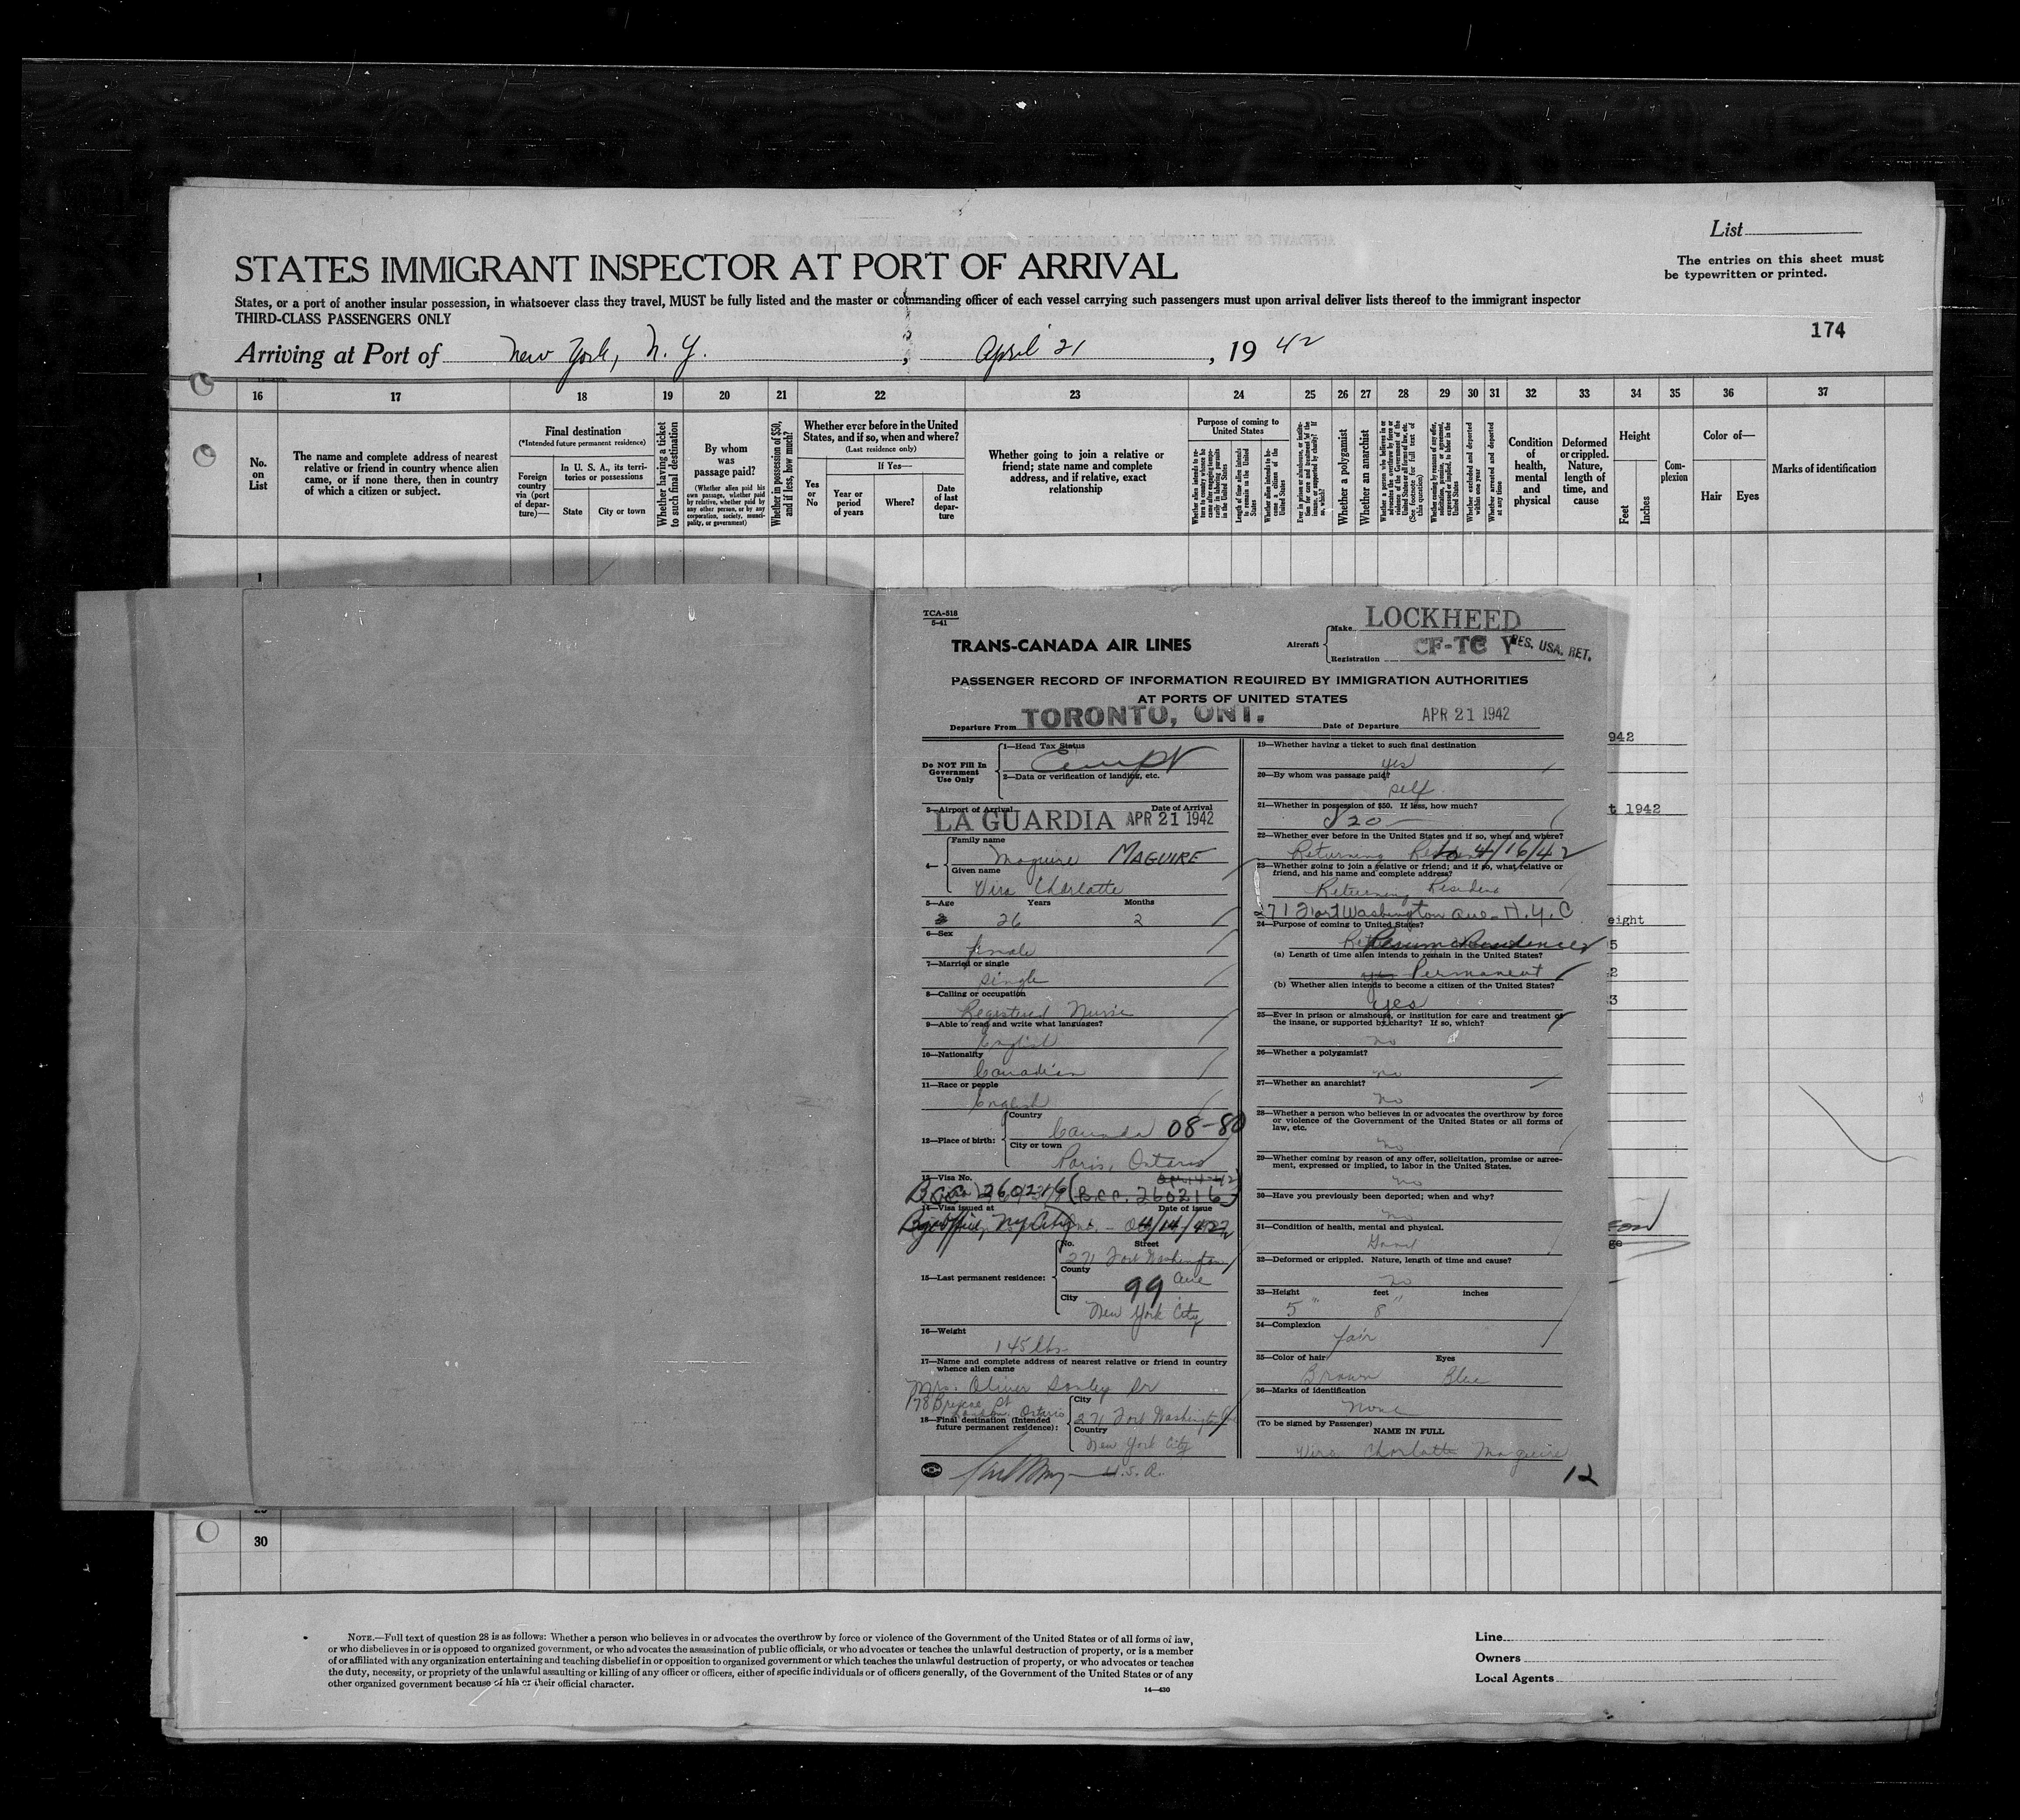 List
STATES IMMIGRANT INSPECTOR AT PORT OF ARRIVAL
The entries on this sheet must
be typewritten or printed.
States, or a port of another insular possession, in whatsoever class they travel, MUST be fully listed and the master or commanding officer of each vessel carrying such passengers must upon arrival deliver lists thereof to the immigrant inspector
THIRD-CLASS PASSENGERS ONLY
174
Arriving at Port of New York, N. Y. , April 21 , 19 42
16 17 18 19 20 21 22 23 24 25 26 27 28 29 30 31 32 33 34 35 36 37
No. on List
The name and complete address of nearest relative or friend in country whence alien came, or if none there, then in country of which a citizen or subject.
Final destination
(*Intended future permanent residence)
Foreign country via (port of departure)—
In U. S. A., its territories or possessions
State
City or town
Whether having a ticket to such final destination
By whom was passage paid?
(Whether alien paid his own passage, whether paid by relative, whether paid by any other person, or by any corporation, society, municipality, or government)
Whether in possession of $50, and if less, how much?
Whether ever before in the United States, and if so, when and where?
(Last residence only)
Yes or No
If Yes—
Year or period of years
Where?
Date of last departure
Whether going to join a relative or friend; state name and complete address, and if relative, exact relationship
Purpose of coming to United States
Whether alien intends to return to country whence he came after engaging temporarily in laboring pursuits in the United States
Length of time alien intends to remain in the United States
Whether alien intends to become a citizen of the United States
Whether a polygamist
Whether an anarchist
Whether excluded and deported within one year
Whether arrested and deported at any time
Condition of health, mental and physical
Deformed or crippled. Nature, length of time, and cause
Height
Feet
Inches
Complexion
Color of—
Hair
Eyes
Marks of identification
1
TCA-518
5-41
TRANS-CANADA AIR LINES
Aircraft
Make LOCKHEED
Registration CF-TC Y
RES. USA. RET.
PASSENGER RECORD OF INFORMATION REQUIRED BY IMMIGRATION AUTHORITIES
AT PORTS OF UNITED STATES
Departure From TORONTO, ONT. Date of Departure APR 21 1942
Do NOT Fill In Government Use Only
1—Head Tax Status
2—Data or verification of landing, etc.
3—Airport of Arrival Date of Arrival
LA GUARDIA APR 21 1942
4— Family name
Maguire MAGUIRE
Given name
Vira Charlotte
5—Age Years Months
26 2
6—Sex
Female
7—Married or single
Single
8—Calling or occupation
Registered Nurse
9—Able to read and write what languages?
English
10—Nationality
Canadian
11—Race or people
English
12—Place of birth:
Country
Canada 08-80
City or town
Paris, Ontario
13—Visa No.
260216 (B.C.C. 260216)
14—Visa issued at Date of issue
4/14/42
15—Last permanent residence:
No. Street
271 Fort Washington
County
Ave
99
City
New York City
16—Weight
145 lbs
17—Name and complete address of nearest relative or friend in country whence alien came
Mrs. Oliver Sr
London, Ontario
18—Final destination (Intended future permanent residence):
City
271 Fort Washington Ave
Country
New York City
U.S.A.
19—Whether having a ticket to such final destination
yes
20—By whom was passage paid?
self
21—Whether in possession of $50. If less, how much?
$20
22—Whether ever before in the United States and if so, when and where?
Returning Resident to 4/16/42
23—Whether going to join a relative or friend; and if so, what relative or friend, and his name and complete address?
Returning Resident
271 Fort Washington Ave - N.Y.C
24—Purpose of coming to United States?
Resume Residence
(a) Length of time alien intends to remain in the United States?
yes Permanent
(b) Whether alien intends to become a citizen of the United States?
yes
25—Ever in prison or almshouse, or institution for care and treatment of the insane, or supported by charity? If so, which?
no
26—Whether a polygamist?
no
27—Whether an anarchist?
no
28—Whether a person who believes in or advocates the overthrow by force or violence of the Government of the United States or all forms of law, etc.
no
29—Whether coming by reason of any offer, solicitation, promise or agreement, expressed or implied, to labor in the United States.
no
30—Have you previously been deported; when and why?
no
31—Condition of health, mental and physical.
Good
32—Deformed or crippled. Nature, length of time and cause?
no
33—Height feet inches
5 " 8 "
34—Complexion
fair
35—Color of hair Eyes
Brown Blue
36—Marks of identification
None
(To be signed by Passenger)
NAME IN FULL
Vira Charlotte Maguire
12
942
t 1942
eight
5
2
3
30
NOTE.—Full text of question 28 is as follows: Whether a person who believes in or advocates the overthrow by force or violence of the Government of the United States or of all forms of law,
or who disbelieves in or is opposed to organized government, or who advocates the assassination of public officials, or who advocates or teaches the unlawful destruction of property, or is a member
of or affiliated with any organization entertaining and teaching disbelief in or opposition to organized government or which teaches the unlawful destruction of property, or who advocates or teaches
the duty, necessity, or propriety of the unlawful assaulting or killing of any officer or officers, either of specific individuals or of officers generally, of the Government of the United States or of any
other organized government because of his or their official character.
14—430
Line
Owners
Local Agents